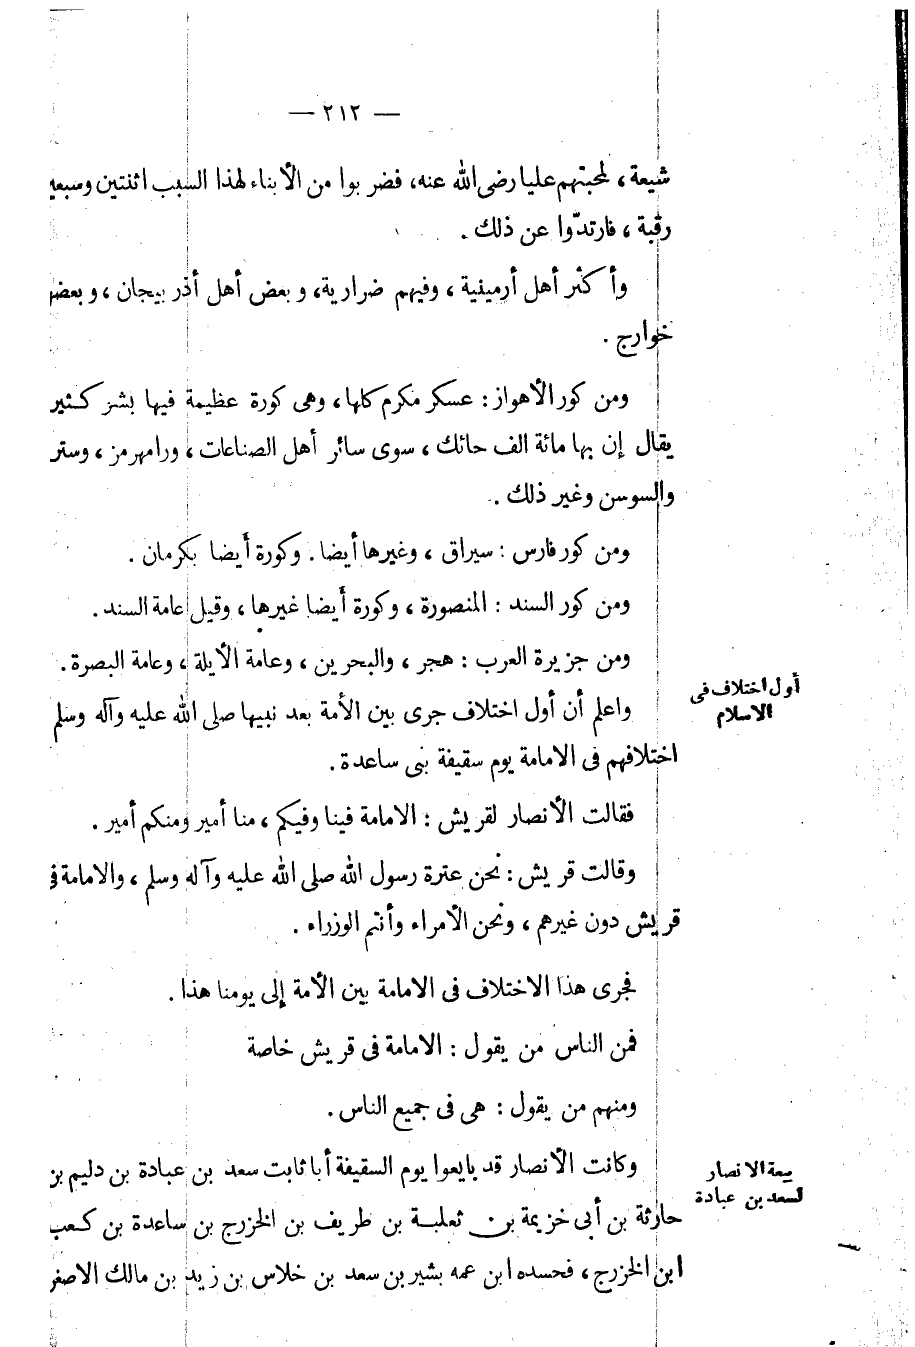 — ٢١٢ —
شيعة ، لمحبتهم عليا رضى الله عنه، فضربوا من الأبناء لهذا السبب اثنتين وسبعي
رقبة ، فارتدّوا عن ذلك .
وأكثر أهل أرمينية ، وفيهم ضرارية، وبعض أهل أذربيجان ، وبعضه
خوارج .
ومن كور الأهواز : عسكر مكرم كلها، وهى كورة عظيمة فيها بشر كثير
يقال إن بها مائة الف حائك ، سوى سائر أهل الصناعات ، ورامهرمز ، وستر
والسوسن وغير ذلك .
ومن كور فارس : سيراق ، وغيرها أيضا . وكورة أيضا بكرمان .
ومن كور السند : المنصورة ، وكورة أيضا غيرها ، وقيل عامة السند .
ومن جزيرة العرب : هجر ، والبحرين ، وعامة الأيلة ، وعامة البصرة .
أول اختلاف فى
الاسلام
واعلم أن أول اختلاف جرى بين الأمة بعد نبيها صلى الله عليه وآله وسلم
اختلافهم فى الامامة يوم سقيفة بنى ساعدة .
فقالت الأنصار لقريش : الامامة فينا وفيكم ، منا أمير ومنكم أمير .
وقالت قريش : نحن عترة رسول الله صلى الله عليه وآله وسلم ، والامامة فى
قريش دون غيرهم ، ونحن الأمراء وأنتم الوزراء .
فجرى هذا الاختلاف فى الامامة بين الأمة إلى يومنا هذا .
فمن الناس من يقول : الامامة فى قريش خاصة
ومنهم من يقول : هى فى جميع الناس .
بيعة الانصار
لسعد بن عبادة
وكانت الأنصار قد بايعوا يوم السقيفة أبا ثابت سعد بن عبادة بن دليم بن
حارثة بن أبى خزيمة بن ثعلبة بن طريف بن الخزرج بن ساعدة بن كعب
ابن الخزرج ، فحسده ابن عمه بشير بن سعد بن خلاس بن زيد بن مالك الاصغر